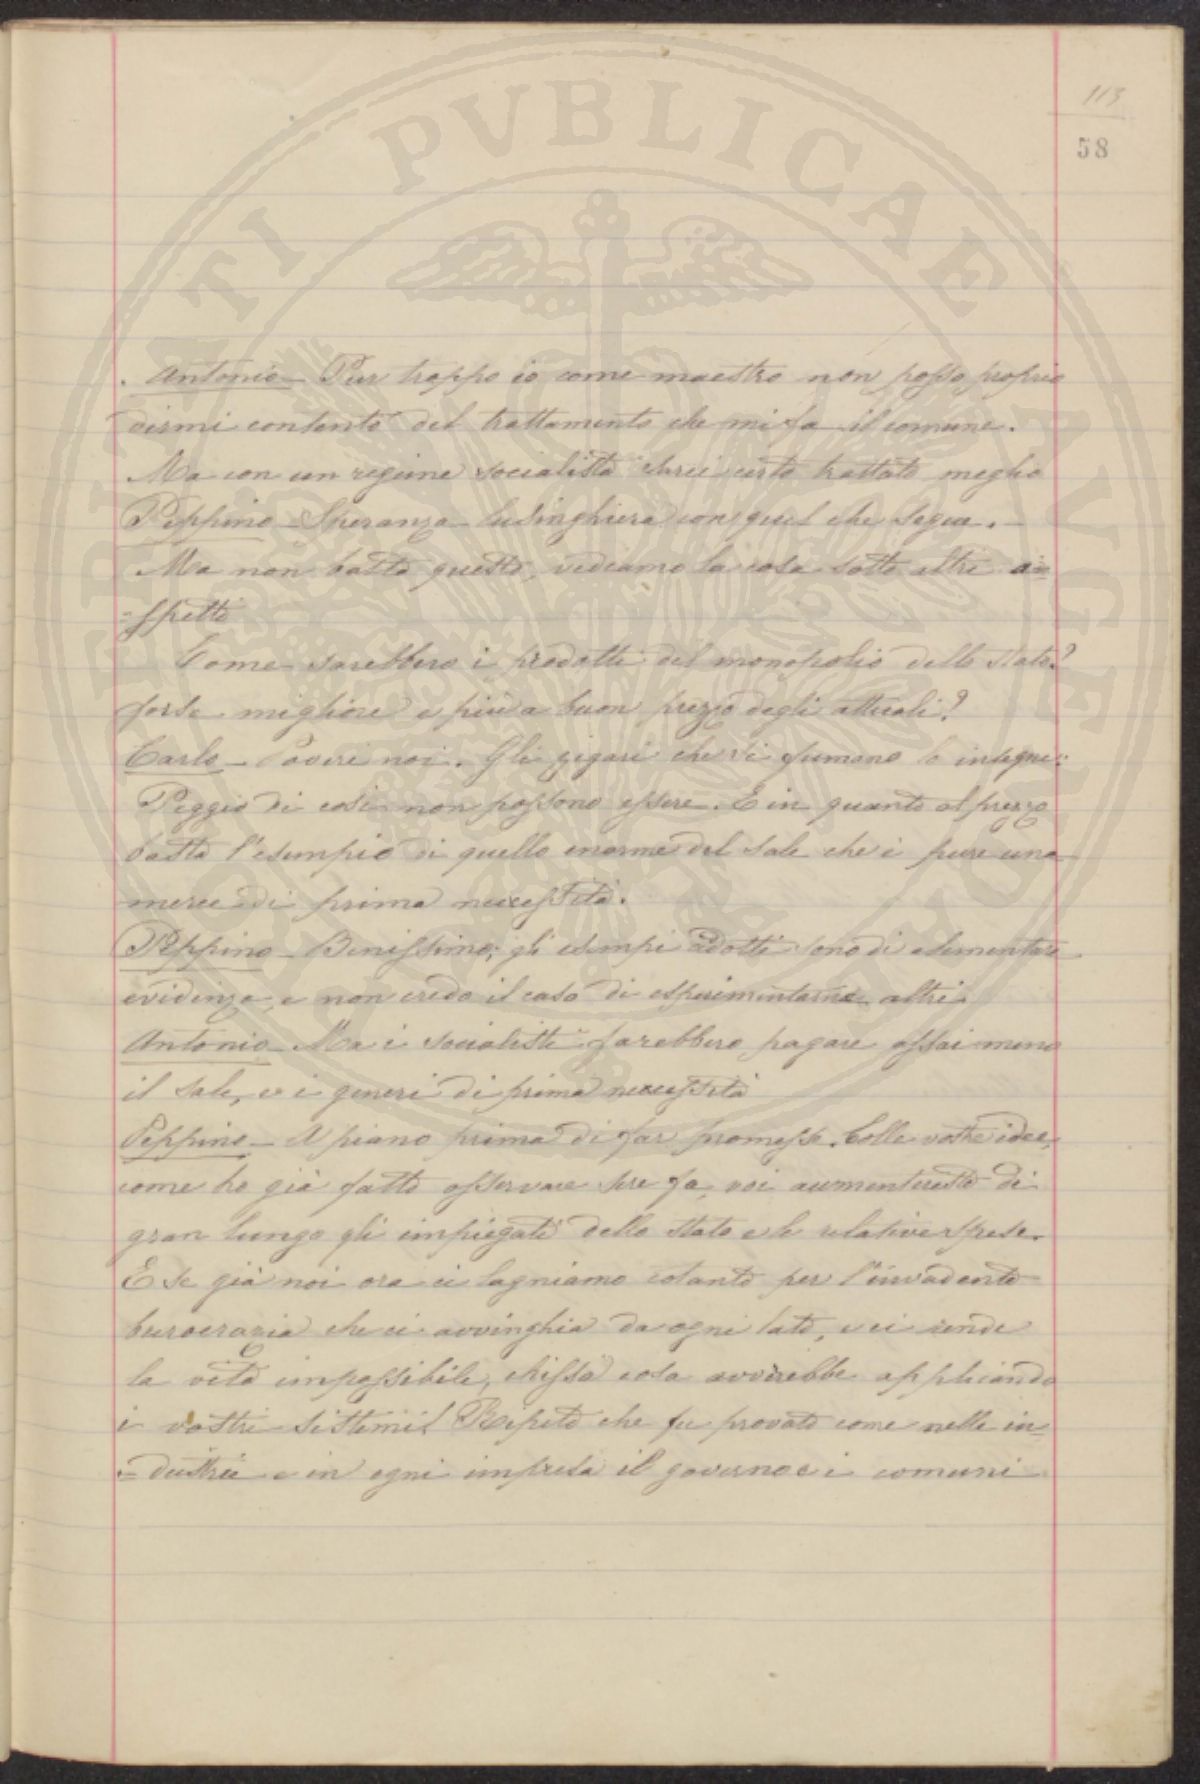 113
58
Antonio - Pur troppo io come maestro non posso proprio
dirmi contento del trattamento che mi fa il comune.
Ma con un regime socialista sarei certo trattato meglio
Peppino - Speranza lusinghiera con quel che segue. -
Ma non basta questo, vediamo la cosa sotto altri a=
=spetti
Come sarebbero i prodotti del monopolio dello stato?
forse migliori e più a buon prezzo degli attuali?
Carlo - Poveri noi. Gli zigari che si fumano lo insegni:
Peggio di così non possono essere. E in quanto al prezzo
basta l'esempio di quello enorme del sale che è pure una
merce di prima necessità.
Peppino - Benissimo; gli esempi adotti sono di elementare
evidenza, e non credo il caso di esperimentarne altri.
Antonio - Ma i socialisti farebbero pagare assai meno
il sale, e i generi di prima necessità
Peppino - A piano prima di far promesse. Colle vostre idee,
come ho già fatto osservare sere fa, voi aumentereste di
gran lunga gli impiegati dello stato e le relative spese.
E se già noi ora ci lagniamo cotanto per l'invadente
burocrazia che ci avvinghia da ogni lato, e ci rende
la vita impossibile, chissà cosa avverebbe appliando
i vostri sistemi! Ripeto che fu provato come nelle in=
=dustrie e in ogni impresa il governo e i comuni
PUBLICAE